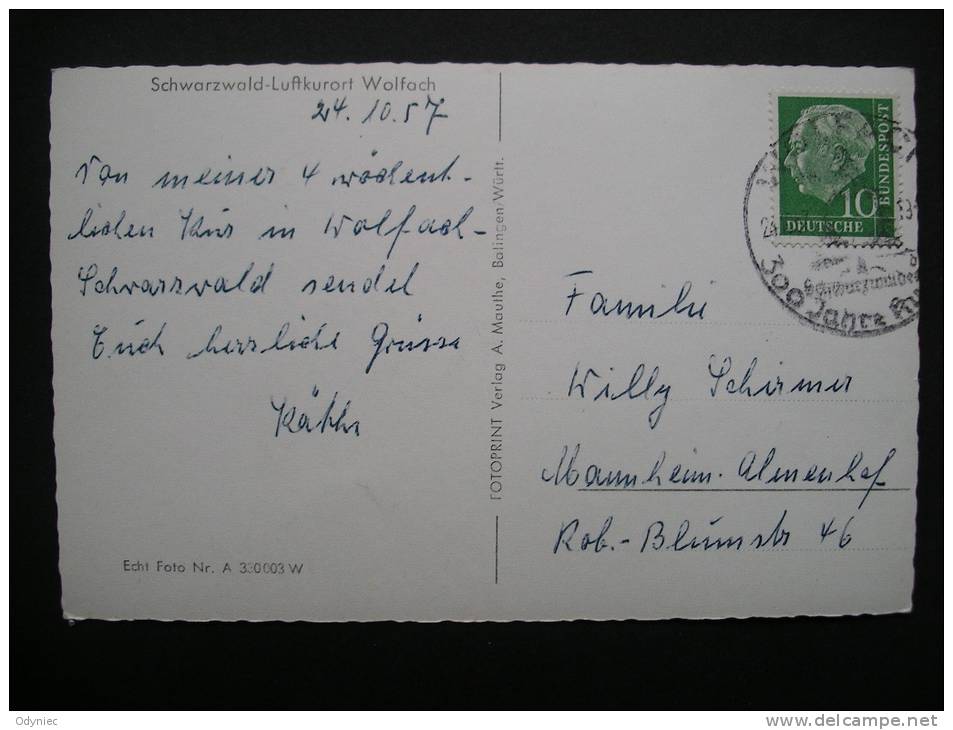 Schwarzwald-Luftkurort Wolfach
24. 10. 57
Von meiner 4 wöchent-
lichen Kur in Wolfach-
Schwarzwald sendet
Euch herzliche Grüsse
Käthe
Echt Foto Nr. A 330003 W
FOTOPRINT Verlag A. Mauthe, Balingen/Württ.
10
DEUTSCHE
BUNDESPOST
300 Jahre
Familie
Willy Schirmer
Mannheim-Almenhof
Rob.-Blumstr 46
Odyniec
http://www.delcampe.net